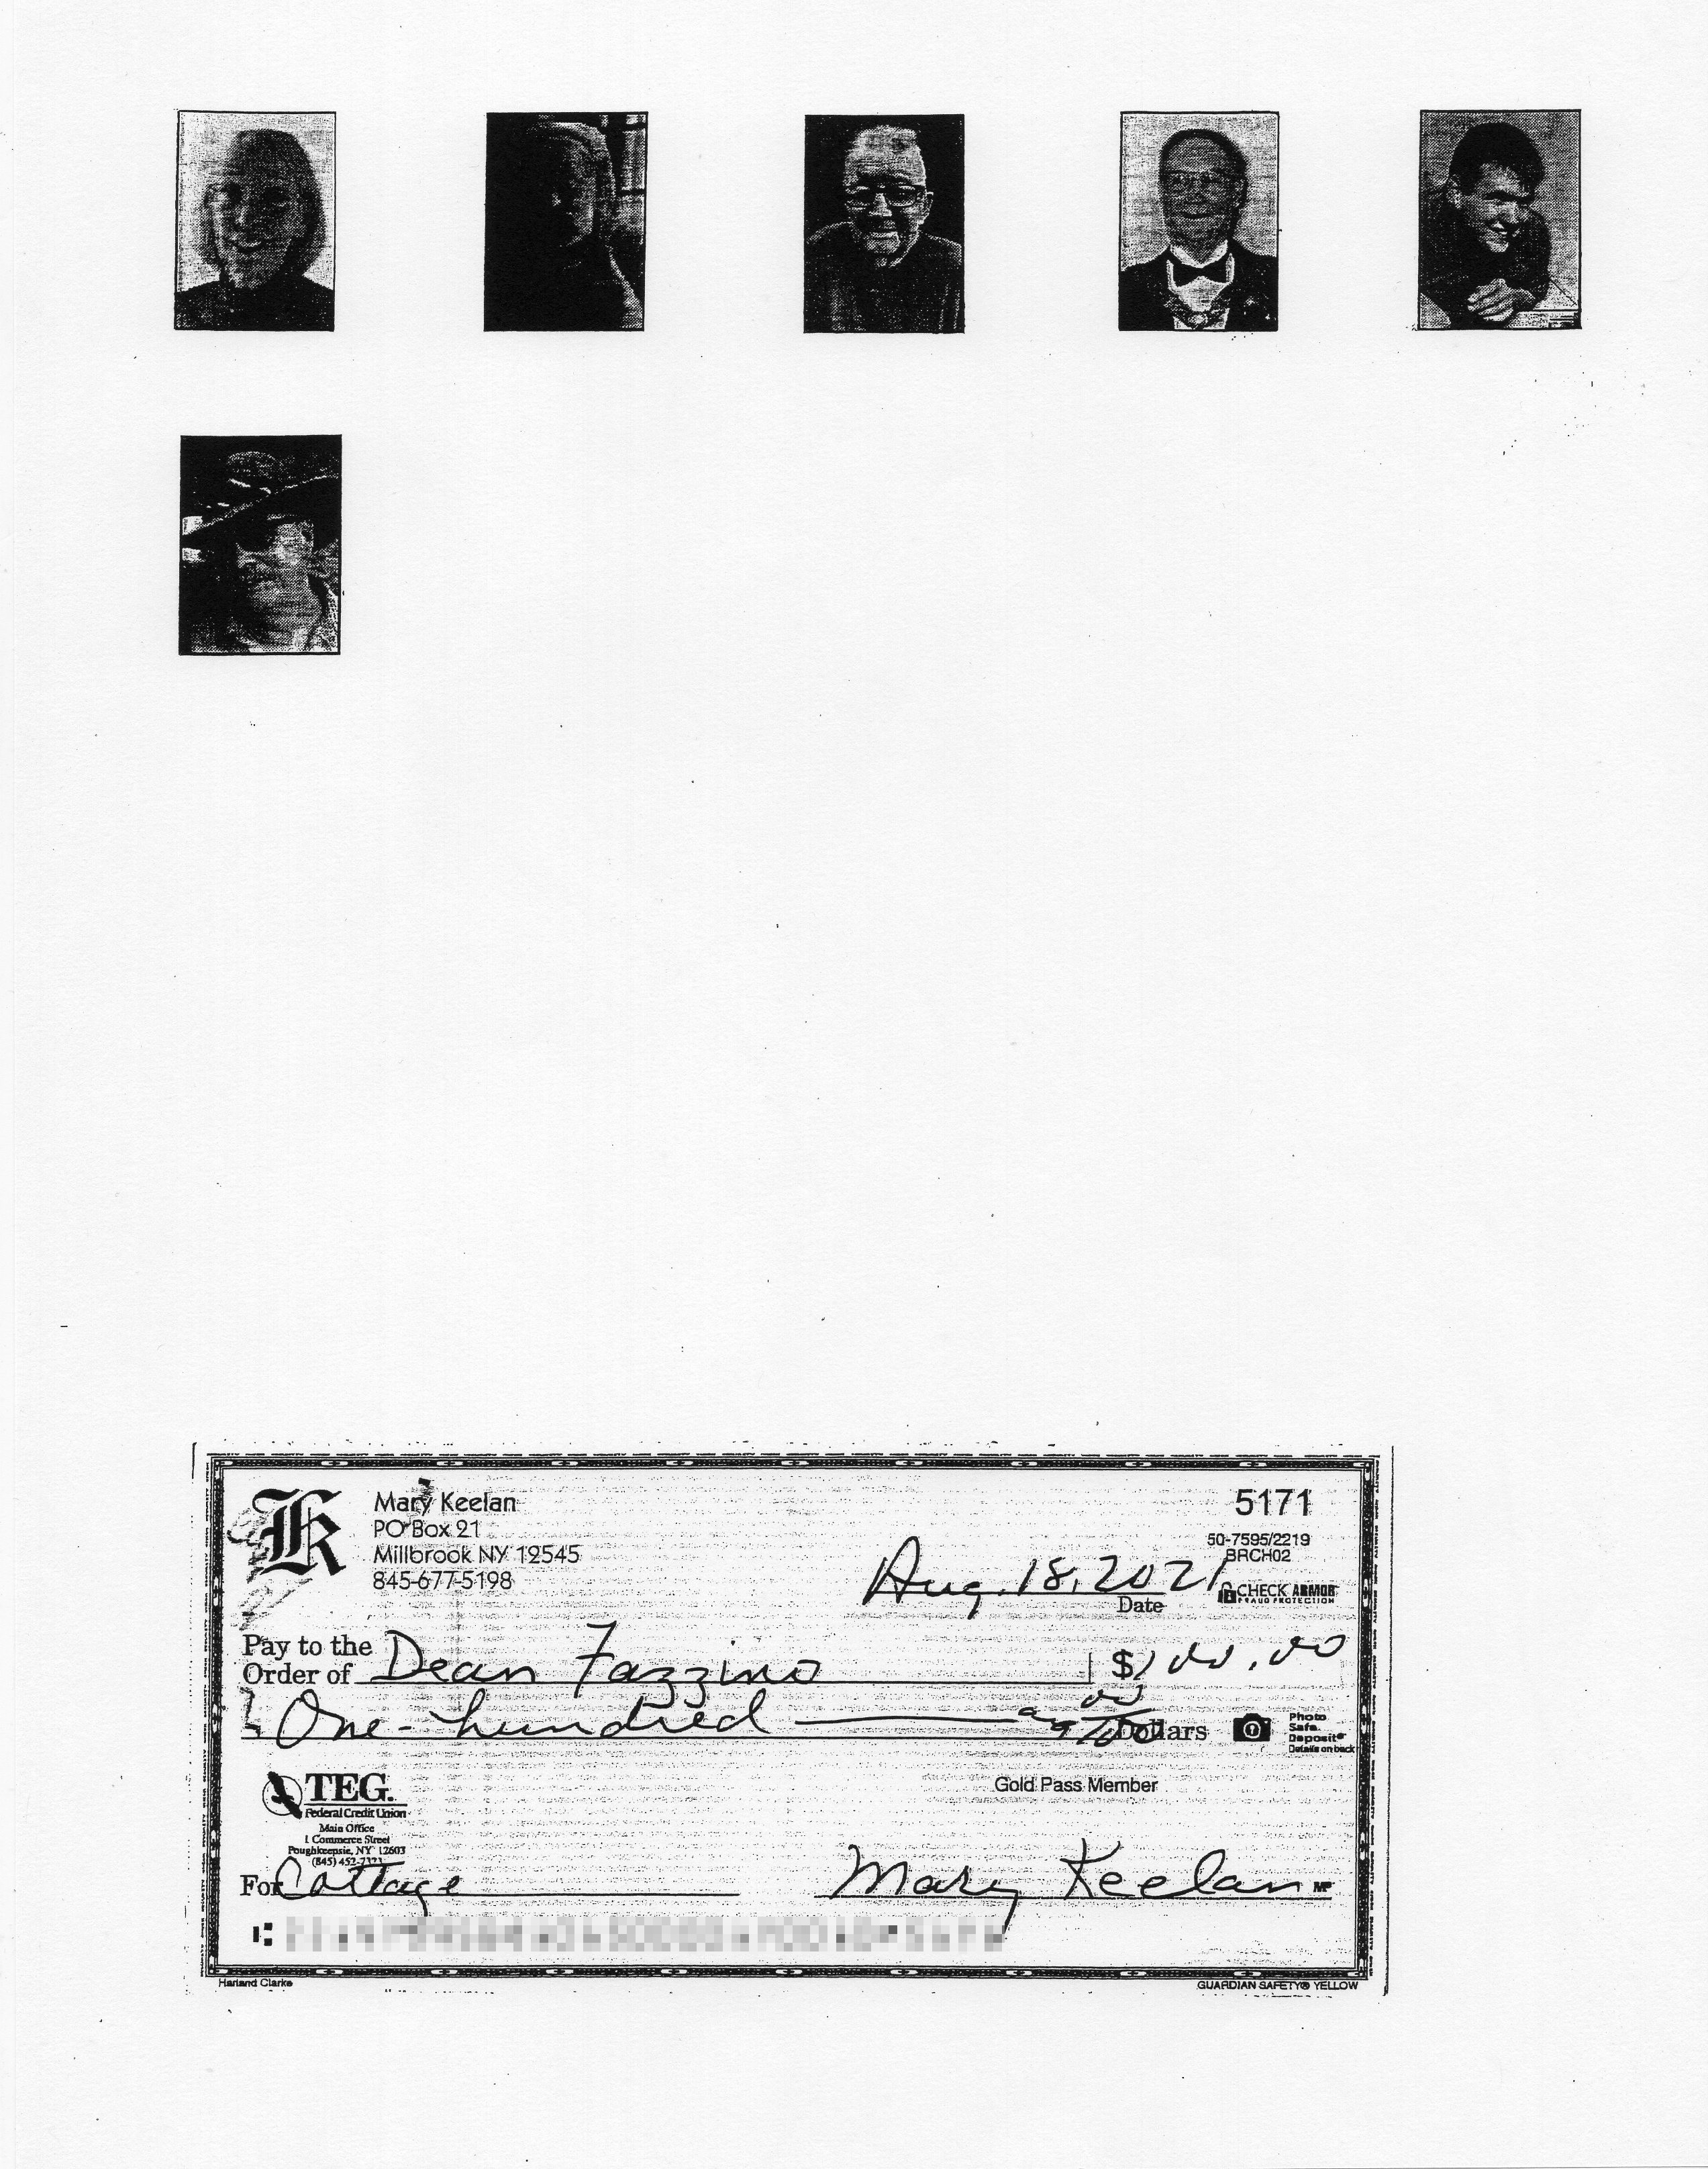 K
Mary Keelan
PO Box 21
Millbrook NY 12545
845-677-5198
5171
50-7595/2219
BRCH02
Aug. 18, 2021
Date
CHECK ARMOR
FRAUD PROTECTION
Pay to the
Order of Dean Fazzino $100.00
One-hundred 00/100 Dollars
Photo
Safe
Deposit®
Details on back
TEG.
Federal Credit Union
Main Office
1 Commerce Street
Poughkeepsie, NY 12603
(845) 452-7323
Gold Pass Member
For Cottage Mary Keelan MP
Harland Clarke GUARDIAN SAFETY® YELLOW